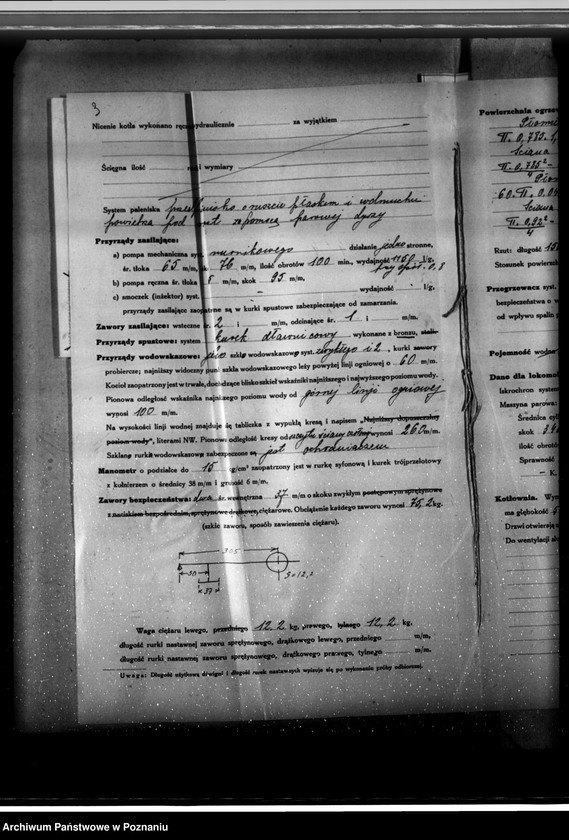 3
Nicenie kotła wykonano ręcz hydraulicznie za wyjątkiem
Ścięgna ilość i wymiary
System paleniska palenisko o ruszcie płaskim i wdmuchu
powietrza pod ruszt zapomocą parowej dyszy
Przyrządy zasilające:
a) pompa mechaniczna syst. nurnikowego działanie jedno stronne,
śr. tłoka 65 m/m, 76 m/m, ilość obrotów 100 min., wydajność 450 l/g,
przy spół. 0,8
b) pompa ręczna śr. tłoka m/m, skok 95 m/m,
c) smoczek (inżektor) syst. – wydajność l/g,
przyrządy zasilające zaopatrzone są w kurki spustowe zabezpieczające od zamarzania.
Zawory zasilające: wsteczne śr. 2 m/m, odcinające śr. 1 m/m,
Przyrządy spustowe: system kurek dławnicowy wykonane z bronzu,
Przyrządy wodowskazowe: szkło wodowskazowe syst. zwykłego i 2 kurki
probiercze; najniższy widoczny punkt szkła wodowskazowego leży powyżej linji ogniowej o 60 m/m.
Kocioł zaopatrzony jest w trwałe, dochodzące blisko szkieł wskaźniki najniższego i najwyższego poziomu wody.
Pionowa odległość wskaźnika najniższego poziomu wody od górnej linji ogniowej
wynosi 100 m/m.
Na wysokości linji wodnej znajduje się tabliczka z wypukłą kreską i napisem „Najniższy dopuszczalny
poziom wody”, literami NW. Pionowa odległość kresy od wynosi 260 m/m.
Szklana rurka wodowskazowa zabezpieczona jest ochraniaczem
Manometr o podziałce do 15 kg/cm² zaopatrzony jest w rurkę syfonową i kurek trójprzelotowy
z kołnierzem o średnicy 38 m/m i grubość 6 m/m.
Zawory bezpieczeństwa: dwa śr. wewnętrzna 37 m/m o skoku zwykłym postępowym sprężynowe
z naciskiem bezpośrednim, sprężynowe drążkowe, ciężarowe. Obciążenie każdego zaworu wynosi 75,2 kg.
(szkic zaworu, sposób zawieszenia ciężaru).
305
50
37
G=12,2
Waga ciężaru lewego, przedniego 12,2 kg, prawego, tylnego 12,2 kg,
długość rurki nastawnej zaworu sprężynowego, drążkowego lewego, przedniego m/m,
długość rurki nastawnej zaworu sprężynowego, drążkowego prawego, tylnego m/m.
Uwaga: Długość użytkową dźwigni i długość rurek nastawnych wpisuje się po wykonaniu próby odbiorczej.
Powierzchnia ogrzew
Płomie
π. 0,785. 1,
ściana
π. 0,785²
4
60. π. 0,04
ściana
π. 0,92²
4
Rzut: długość
Stosunek powierzch
Przegrzewacz syst.
bezpieczeństwa o
od wpływu spalin
Pojemność
Dane dla lokomo
Iskrochron system
Maszyna parowa:
Średnica cyl
skok
ilość obrotów
Sprawność
– K.
Kotłownia.
ma głębokość
Drzwi otwierają
Do wentylacji
Archiwum Państwowe w Poznaniu